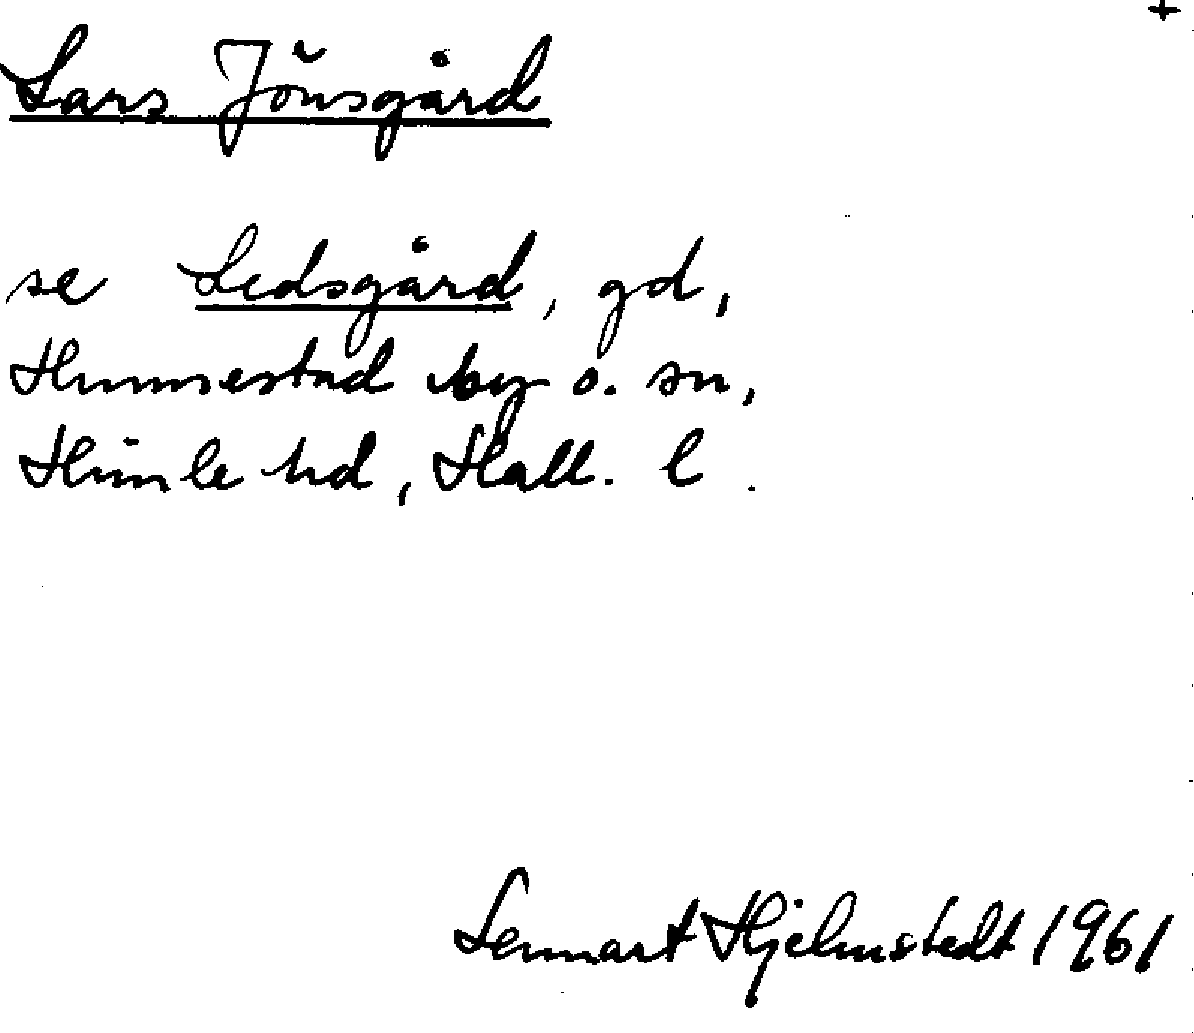 +
Lars Jönsgård
se Ledsgård, gd,
Hunnestad by o. sn,
Himle hd, Hall. l.
Lennart Hjelmstedt 1961